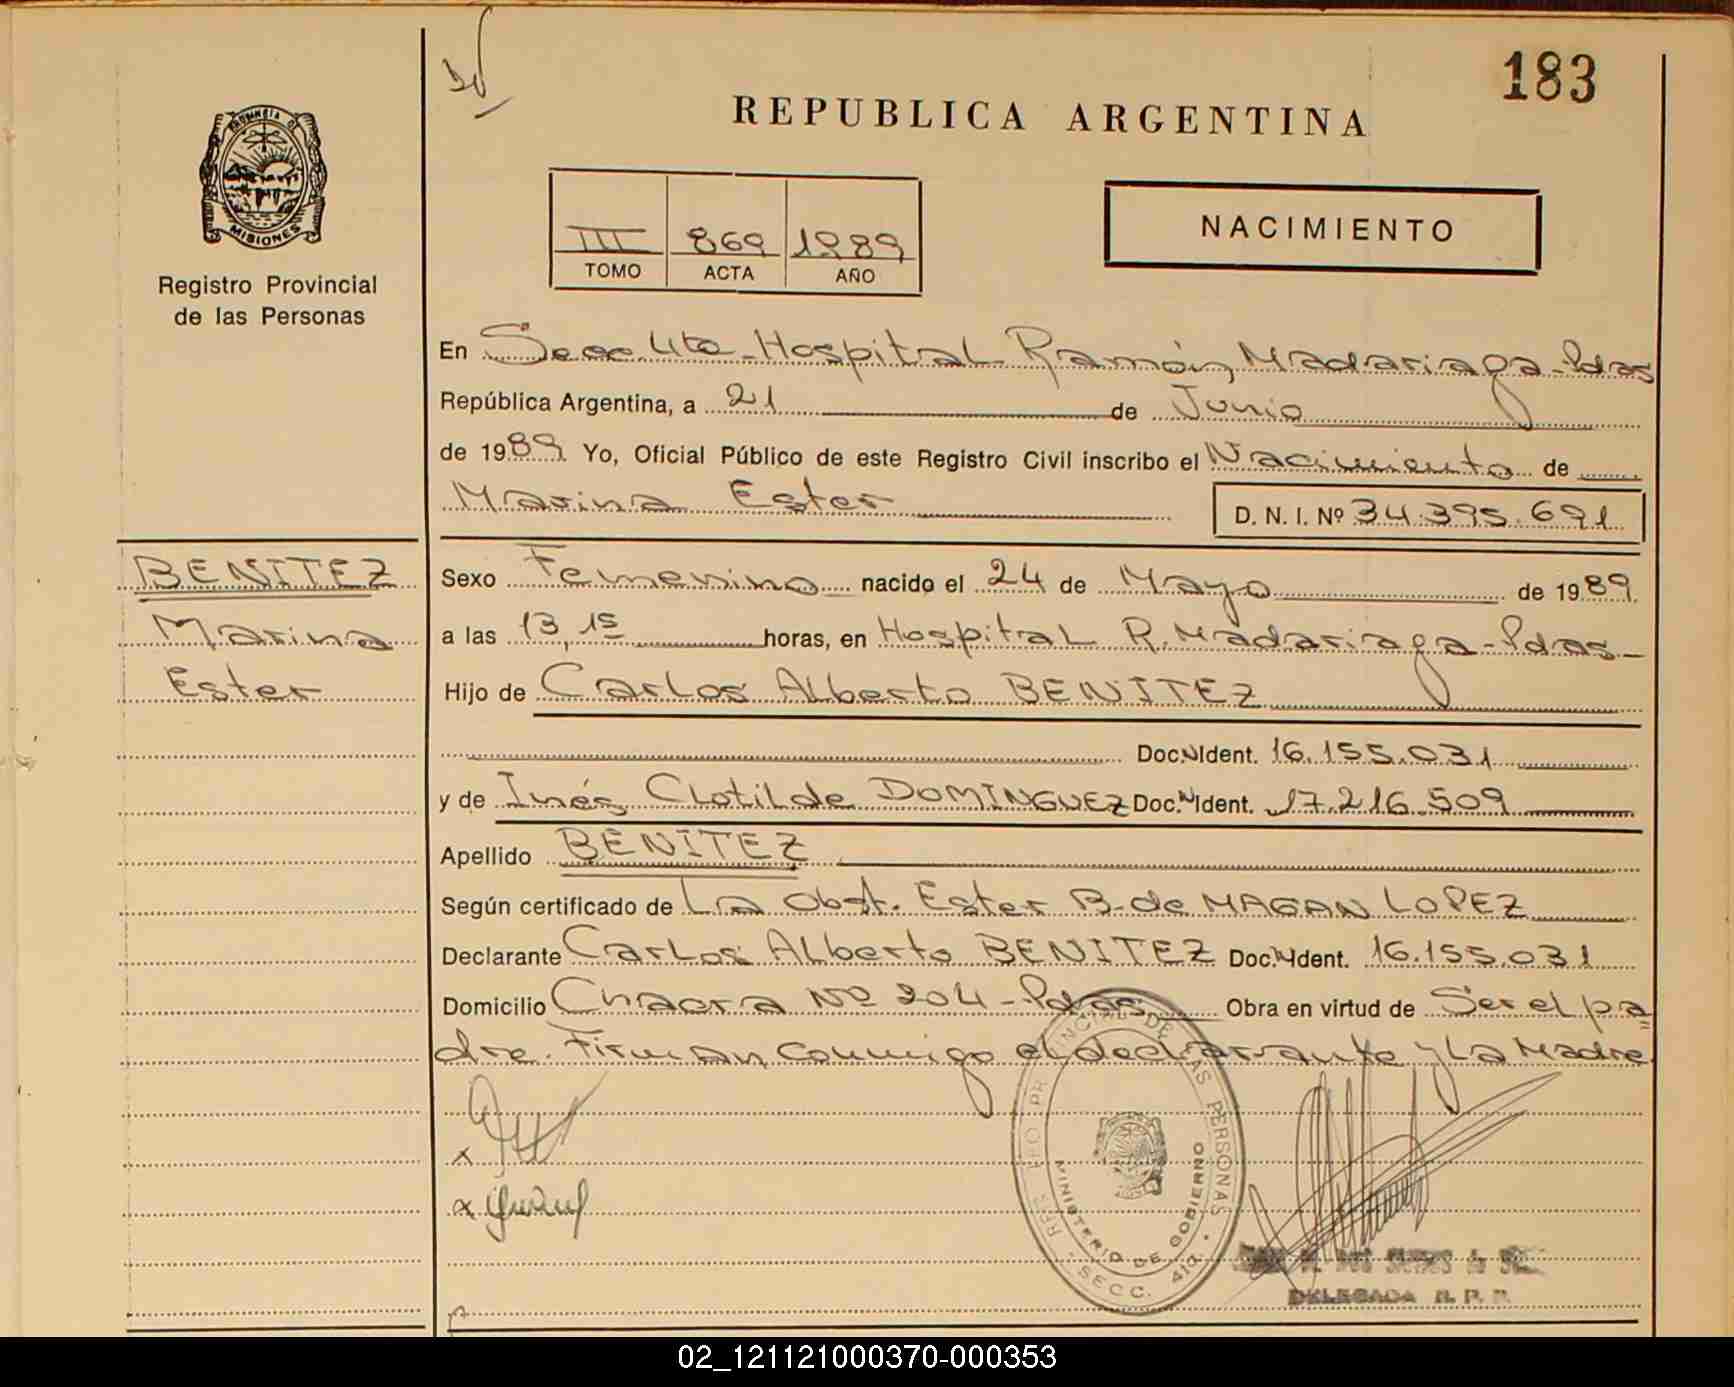 183
REPUBLICA ARGENTINA
PROVINCIA DE
MISIONES
Registro Provincial
de las Personas
NACIMIENTO
III 869 1989
TOMO ACTA AÑO
En Secc 4ta - Hospital Ramón Madariaga - Pdas
República Argentina, a 21 de Junio
de 1989 Yo, Oficial Público de este Registro Civil inscribo el Nacimiento de
Marina Ester D. N. I. Nº 34.395.691
BENITEZ
Marina
Ester
Sexo Femenino nacido el 24 de Mayo de 1989
a las 13,15 horas, en Hospital R. Madariaga - Pdas -
Hijo de Carlos Alberto BENITEZ
Doc.N Ident. 16.155.031
y de Inés Clotilde DOMINGUEZ Doc.N Ident. 17.216.509
Apellido BENITEZ
Según certificado de La Obst. Ester B. de MAGAN LOPEZ
Declarante Carlos Alberto BENITEZ Doc.N Ident. 16.155.031
Domicilio Chacra Nº 204 - Pdas Obra en virtud de Ser el pa=
dre. Firman conmigo el declarante y la Madre.
x
x
REGISTRO PROVINCIAL DE LAS PERSONAS
MINISTERIO DE GOBIERNO
SECC. 4ta.
DELEGADA R. P. P.
02_121121000370-000353